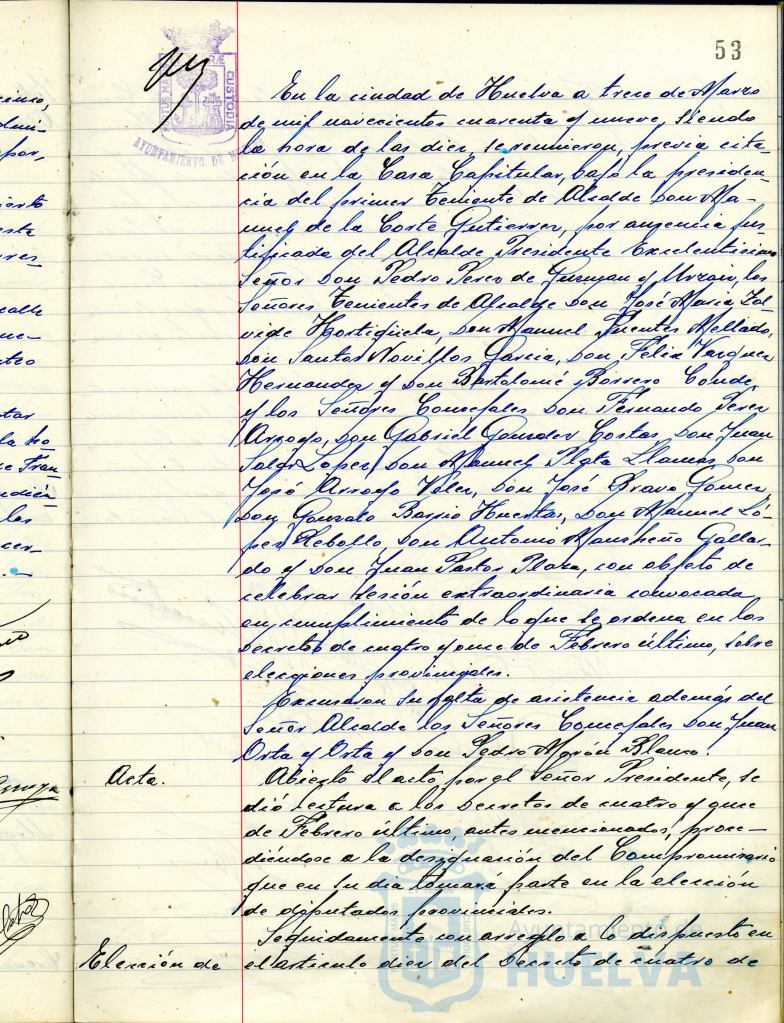 53
En la ciudad de Huelva a trece de Marzo
de mil novecientos cuarenta y nueve, siendo
la hora de las diez, se reunieron, previa cita-
ción en la Casa Capitular, bajo la presiden-
cia del primer Teniente de Alcalde Don Ma-
nuel de la Corte Gutierrez, por ausencia jus-
tificada del Alcalde Presidente Excelentisimo
Señor Don Pedro Perez de Guzman y Urzaiz, los
Señores Tenientes de Alcalde Don José Maria Zal-
vide Hortigüela, Don Manuel Fuentes Mellado,
Don Santos Novillos Garcia, Don Felix Vazquez
Hernandez y Don Bartolomé Borrero Conde,
y los Señores Concejales Don Fernando Perez
Arroyo, Don Gabriel Gonzalez Costas, Don Juan
Lopez, Don Manuel Plata Llamas, Don
José Arroyo Velez, Don José Bravo Gomez,
Don Gonzalo Barrio Huertas, Don Manuel Ló-
pez Rebollo, Don Antonio Mancheño Gallar-
do y Don Juan Pastor Plaza, con objeto de
celebrar sesión extraordinaria convocada
en cumplimiento de lo que se ordena en los
Decretos de cuatro y once de Febrero último, sobre
elecciones provinciales.
Excusaron su falta de asistencia además del
Señor Alcalde los Señores Concejales Don Juan
Orta y Orta y Don Pedro Morón Blanco.
Acta. Abierto el acto por el Señor Presidente, se
dió lectura a los Decretos de cuatro y once
de Febrero último, antes mencionados, proce-
diéndose a la designación del Compromisario
que en su dia tomará parte en la elección
de diputados provinciales.
Seguidamente con arreglo a lo dispuesto en
Elección de el articulo diez del Decreto de cuatro de
CUSTODIA
AYUNTAMIENTO DE
Ayuntamiento de
HUELVA